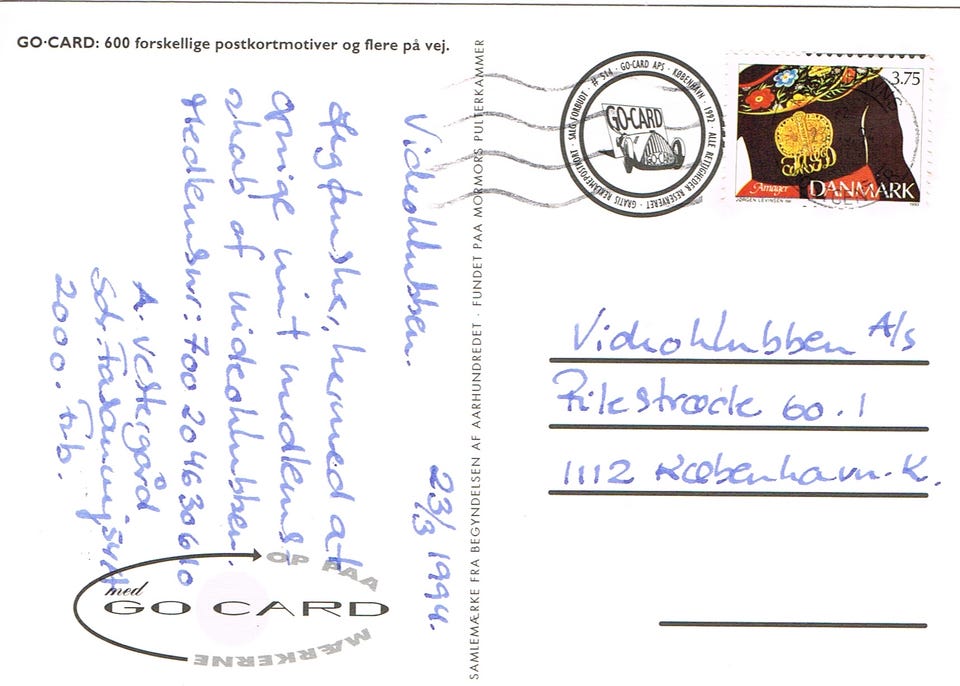 GO·CARD: 600 forskellige postkortmotiver og flere på vej.
Videoklubben.
23/3 1994.
Jeg ønsker, hermed at
opsige mit medlems-
skab af videoklubben.
Medlemsnr: 700 20463060
A. Vestergård
2000. Frb.
OP PAA
med
GO CARD
MÆRKERNE
SAMLEMÆRKE FRA BEGYNDELSEN AF AARHUNDREDET · FUNDET PAA MORMORS PULTERKAMMER
# 514 · GO-CARD APS · KØBENHAVN · 1992 · ALLE RETTIGHEDER RESERVERET · GRATIS REKLAMEPOSTKORT · SALG FORBUDT ·
GO-CARD
GO-CARD
3.75
Amager
DANMARK
JØRGEN LEVINSEN
1993
Videoklubben A/s
Pilestræde 60.1
1112 København.K.